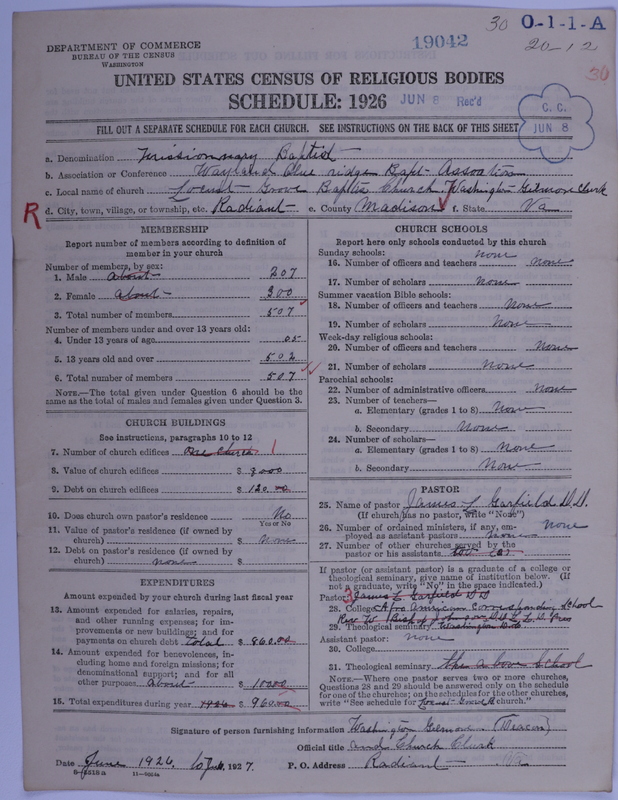 30 O-1-1-A
DEPARTMENT OF COMMERCE
BUREAU OF THE CENSUS
WASHINGTON
19042
20-12
30
UNITED STATES CENSUS OF RELIGIOUS BODIES
SCHEDULE: 1926 JUN 8 Rec'd
C. C.
JUN 8
FILL OUT A SEPARATE SCHEDULE FOR EACH CHURCH. SEE INSTRUCTIONS ON THE BACK OF THIS SHEET
a. Denomination Missionnary Baptist
b. Association or Conference Wayland Blue ridge Bapt- Assoation
c. Local name of church Locust- Grove Baptis Church Washington Gilmore Clerk
R d. City, town, village, or township, etc. Radiant e. County Madison f. State Va
MEMBERSHIP
Report number of members according to definition of
member in your church
Number of members, by sex:
1. Male About 207
2. Female About 300
3. Total number of members 507
Number of members under and over 13 years old:
4. Under 13 years of age 05
5. 13 years old and over 502
6. Total number of members 507
NOTE.—The total given under Question 6 should be
the same as the total of males and females given under Question 3.
CHURCH BUILDINGS
See instructions, paragraphs 10 to 12
7. Number of church edifices One Church 1
8. Value of church edifices $ 2000
9. Debt on church edifices $ 120.00
10. Does church own pastor's residence No
Yes or No
11. Value of pastor's residence (if owned by
church) $ None
12. Debt on pastor's residence (if owned by
church) none $
EXPENDITURES
Amount expended by your church during last fiscal year
13. Amount expended for salaries, repairs,
and other running expenses; for im-
provements or new buildings; and for
payments on church debt total $ 860.00
14. Amount expended for benevolences, in-
cluding home and foreign missions; for
denominational support; and for all
other purposes About $ 100.00
15. Total expenditures during year 1926 $ 960.00
CHURCH SCHOOLS
Report here only schools conducted by this church
Sunday schools: none
16. Number of officers and teachers none
17. Number of scholars none
Summer vacation Bible schools:
18. Number of officers and teachers None
19. Number of scholars None
Week-day religious schools:
20. Number of officers and teachers None
21. Number of scholars None
Parochial schools:
22. Number of administrative officers None
23. Number of teachers—
a. Elementary (grades 1 to 8) None
b. Secondary None
24. Number of scholars—
a. Elementary (grades 1 to 8) None
b. Secondary None
PASTOR
25. Name of pastor James L Garfield D.D.
(If church has no pastor, write "None")
26. Number of ordained ministers, if any, em-
ployed as assistant pastors none none
27. Number of other churches served by the
pastor or his assistants two (2)
If pastor (or assistant pastor) is a graduate of a college or
theological seminary, give name of institution below. (If
not a graduate, write "No" in the space indicated.)
Pastor: James L Garfield D D
28. College Afro American corresponding School
29. Theological seminary Washington D.C.
Assistant pastor: none
30. College
31. Theological seminary the above School
NOTE.—Where one pastor serves two or more churches,
Questions 28 and 29 should be answered only on the schedule
for one of the churches; on the schedules for the other churches,
write "See schedule for Locust Grove B church."
Signature of person furnishing information Washington Gilmore (Deacon)
Official title and Church Clerk
Date June 1926, 1927. P. O. Address Radiant Va
11—9864a